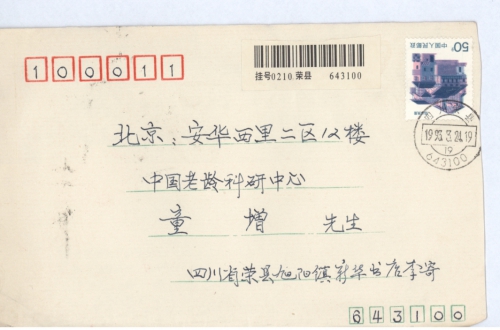 100011
挂号0210 荣县 643100
50分
中国人民邮政
北京：安华西里二区12楼
中国老龄科研中心
童增 先生
四川省荣县旭阳镇新华书店李寄
643100
643100